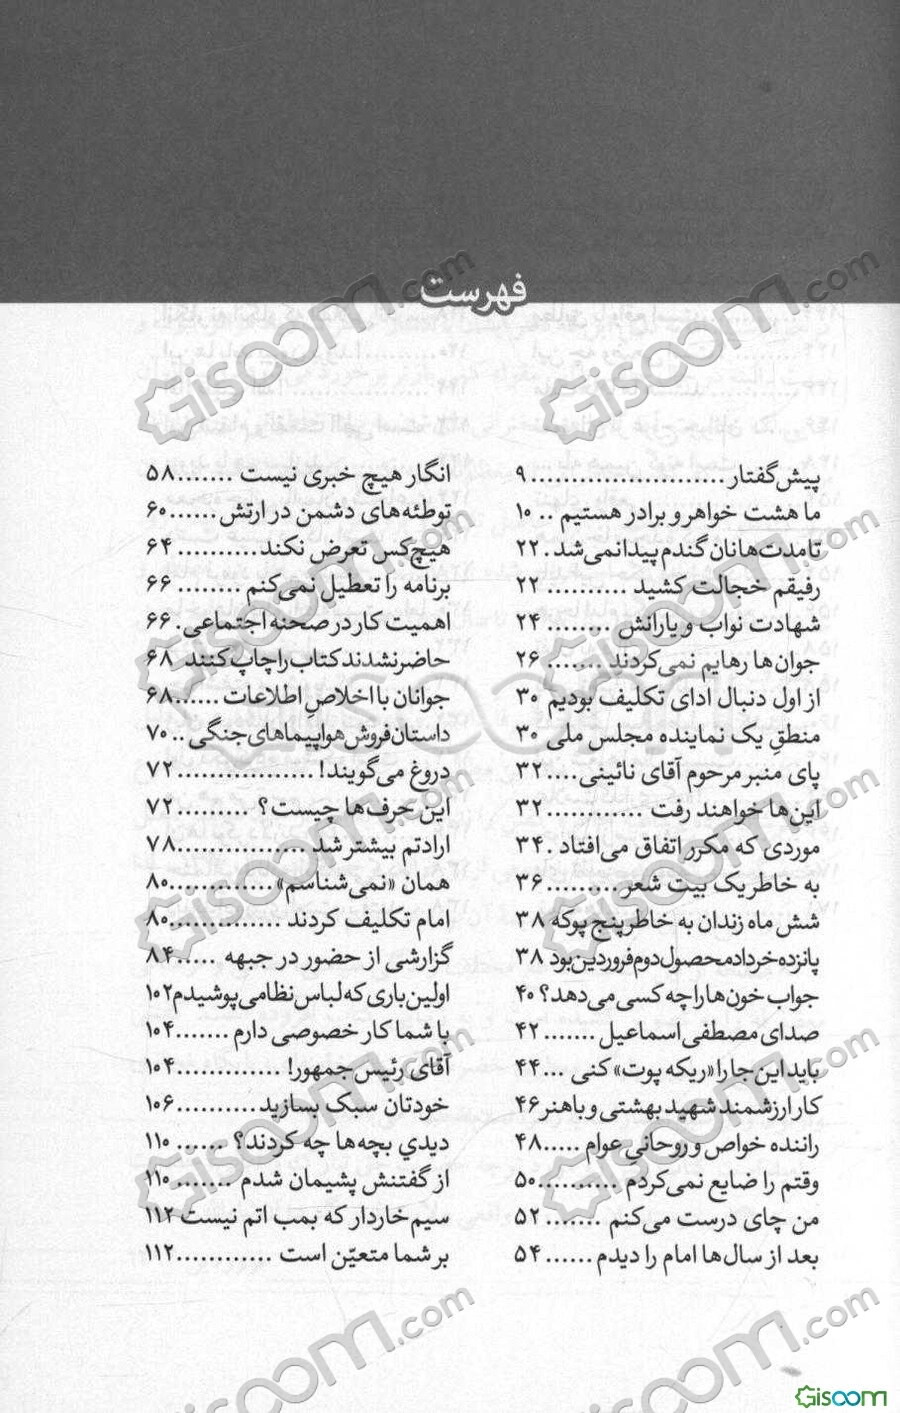 فهرست
پیش‌گفتار ........................ ۹
ما هشت خواهر و برادر هستیم .. ۱۰
تا مدت‌ها نان گندم پیدا نمی‌شد . ۲۲
رفیقم خجالت کشید .......... ۲۲
شهادت نواب و یارانش ........ ۲۴
جوان‌ها رهایم نمی‌کردند ....... ۲۶
از اول دنبال ادای تکلیف بودیم ۳۰
منطقِ یک نماینده مجلس ملی ۳۰
پای منبر مرحوم آقای نائینی .... ۳۲
این‌ها خواهند رفت ............ ۳۲
موردی که مکرر اتفاق می‌افتاد . ۳۴
به خاطر یک بیت شعر .......... ۳۶
شش ماه زندان به خاطر پنج پوکه ۳۸
پانزده خرداد محصول دوم فروردین بود ۳۸
جواب خون‌ها را چه کسی می‌دهد؟ ۴۰
صدای مصطفی اسماعیل ....... ۴۲
باید این جا را «ریکه پوت» کنی ... ۴۴
کار ارزشمند شهید بهشتی و باهنر ۴۶
راننده خواص و روحانیِ عوام ..... ۴۸
وقتم را ضایع نمی‌کردم ........... ۵۰
من چای درست می‌کنم ....... ۵۲
بعد از سال‌ها امام را دیدم ...... ۵۴
انگار هیچ خبری نیست ....... ۵۸
توطئه‌های دشمن در ارتش ...... ۶۰
هیچ‌کس تعرض نکند .......... ۶۴
برنامه را تعطیل نمی‌کنم ........ ۶۶
اهمیت کار در صحنه اجتماعی . ۶۶
حاضر نشدند کتاب را چاپ کنند ۶۸
جوانان با اخلاصِ اطلاعات ...... ۶۸
داستان فروش هواپیماهای جنگی .. ۷۰
دروغ می‌گویند! ................. ۷۲
این حرف‌ها چیست؟ .......... ۷۲
ارادتم بیشتر شد ................. ۷۸
همان «نمی‌شناسم» ............. ۸۰
امام تکلیف کردند .............. ۸۰
گزارشی از حضور در جبهه ..... ۸۴
اولین باری که لباس نظامی پوشیدم ۱۰۲
با شما کار خصوصی دارم ....... ۱۰۴
آقای رئیس جمهور! ............. ۱۰۴
خودتان سبک بسازید .......... ۱۰۶
دیدیِ بچه‌ها چه کردند؟ ...... ۱۱۰
از گفتنش پشیمان شدم ....... ۱۱۰
سیم خاردار که بمب اتم نیست ۱۱۲
بر شما متعیّن است ............ ۱۱۲
Gisoom.com
Gisoom